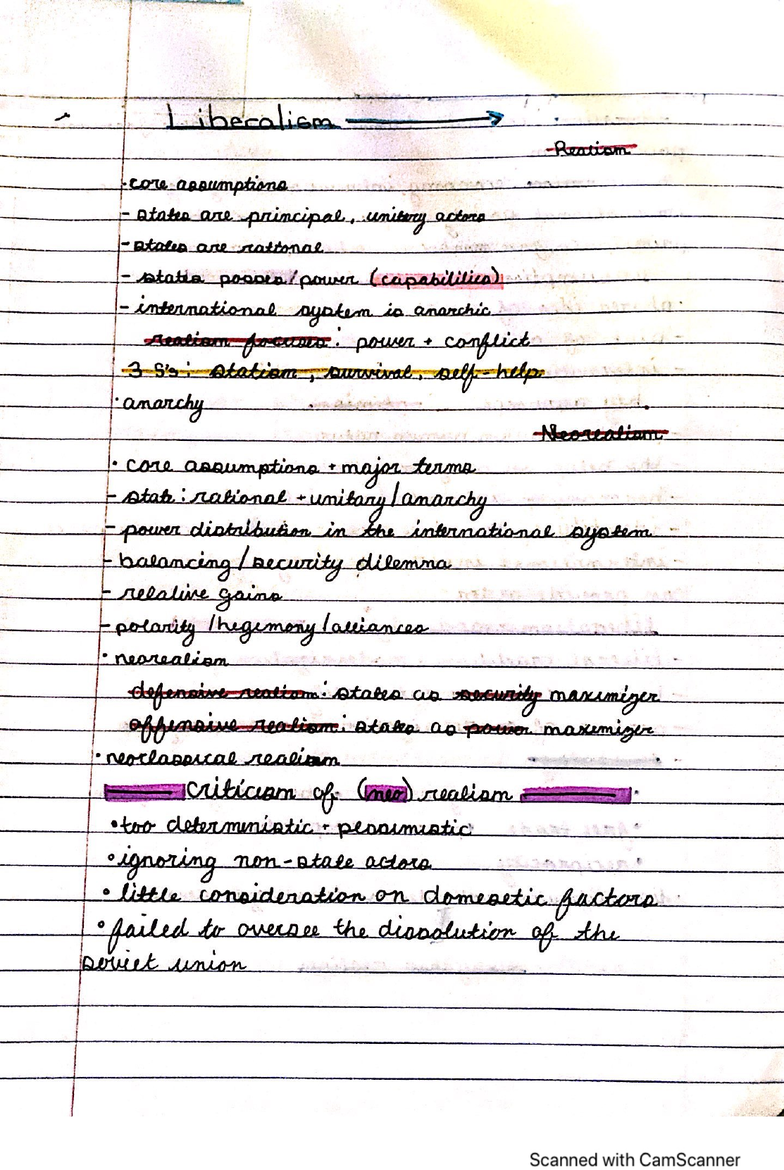 Liberalism
Realism
·core assumptions
- states are principal, unitary actors
- states are rational
- states posses/power (capabilities)
- international system is anarchic
realism focuses: power + conflict
3 S's: statism, survival, self-help
·anarchy
Neorealism
· core assumptions + major terms
- state: rational + unitary/anarchy
- power distribution in the international system
- balancing/security dilemma
- relative gains
- polarity/hegemony/alliances
· neorealism
defensive realism: states as security maximizer
offensive realism: states as power maximizer
·neoclassical realism
criticism of (neo) realism
•too deterministic + pessimistic
•ignoring non-state actors
• little consideration on domestic factors
• failed to oversee the dissolution of the
soviet union
Scanned with CamScanner